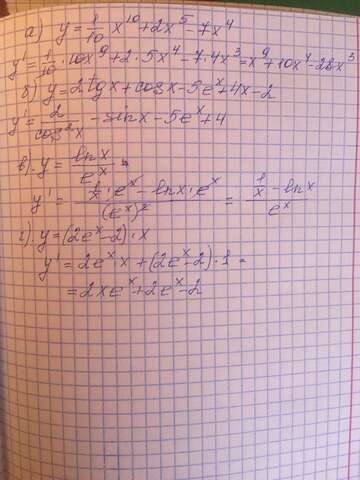 а) y = 1/10 x^10 + 2x^5 - 7x^4
y' = 1/10 · 10x^9 + 2 · 5x^4 - 7 · 4x^3 = x^9 + 10x^4 - 28x^3
б) y = 2tgx + cosx - 5e^x + 4x - 2
y' = 2/cos^2x - sinx - 5e^x + 4
в). y = lnx/e^x
y' = (1/x · e^x - lnx · e^x)/(e^x)^2 = (1/x - lnx)/e^x
г). y = (2e^x - 2) · x
y' = 2e^x · x + (2e^x - 2) · 1 =
= 2xe^x + 2e^x - 2